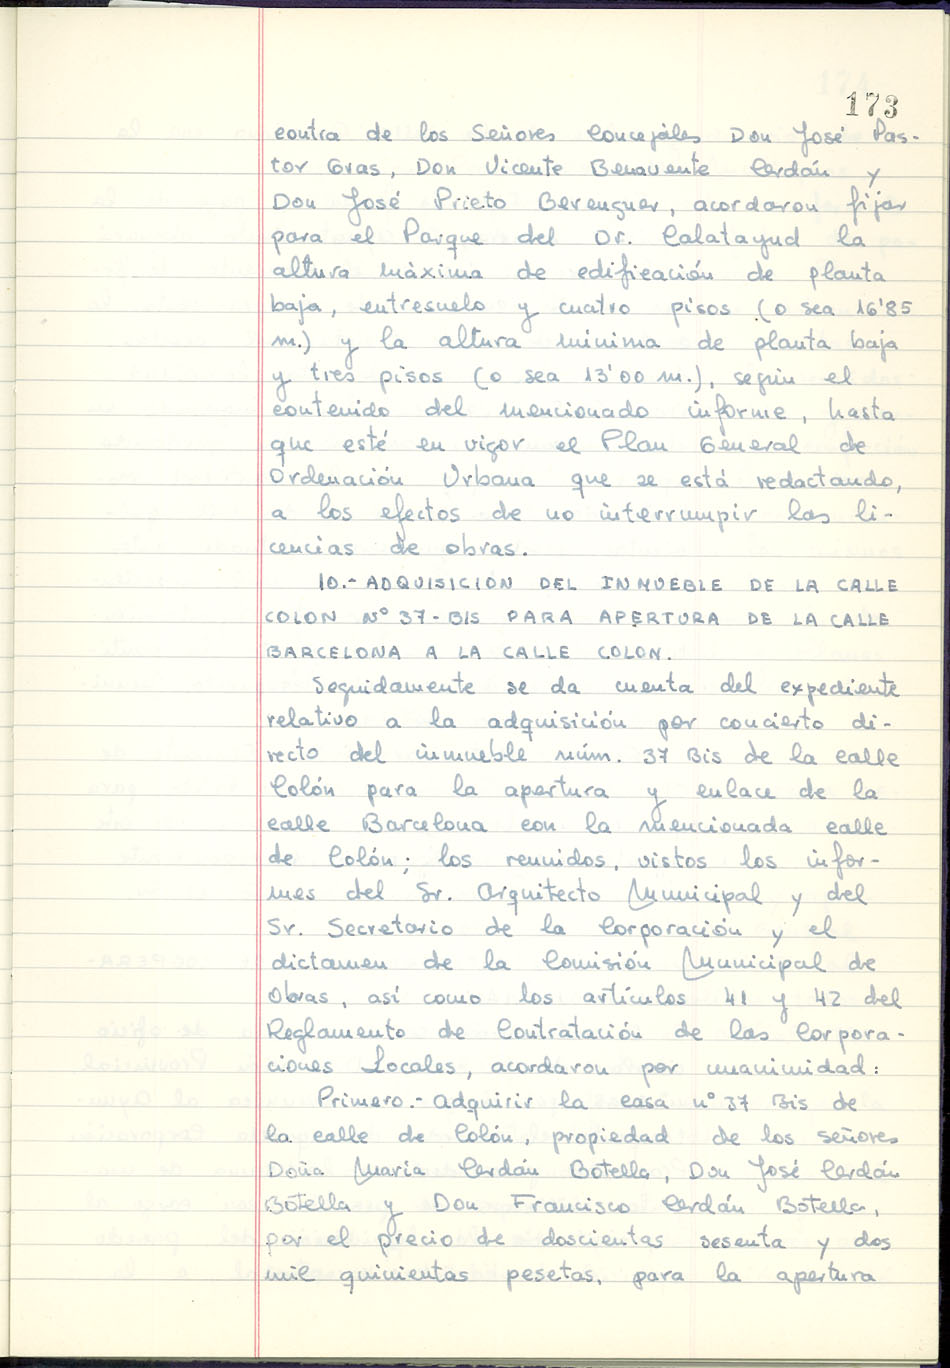 173
contra de los Señores Concejales Don José Pas-
tor Gras, Don Vicente Benavente Cerdán y
Don José Prieto Berenguer, acordaron fijar
para el Parque del Dr. Calatayud la
altura máxima de edificación de planta
baja, entresuelo y cuatro pisos (o sea 16'85
m.) y la altura mínima de planta baja
y tres pisos (o sea 13'00 m.), según el
contenido del mencionado informe, hasta
que esté en vigor el Plan General de
Ordenación Urbana que se está redactando,
a los efectos de no interrumpir las li-
cencias de obras.
10.- ADQUISICION DEL INMUEBLE DE LA CALLE
COLON Nº 37-BIS PARA APERTURA DE LA CALLE
BARCELONA A LA CALLE COLON.
Seguidamente se da cuenta del expediente
relativo a la adquisición por concierto di-
recto del inmueble núm. 37 Bis de la calle
Colón para la apertura y enlace de la
calle Barcelona con la mencionada calle
de Colón; los reunidos, vistos los infor-
mes del Sr. Arquitecto Municipal y del
Sr. Secretario de la Corporación y el
dictamen de la Comisión Municipal de
Obras, así como los artículos 41 y 42 del
Reglamento de Contratación de las Corpora-
ciones Locales, acordaron por unanimidad:
Primero.- Adquirir la casa nº 37 Bis de
la calle de Colón, propiedad de los señores
Doña María Cerdán Botella, Don José Cerdán
Botella y Don Francisco Cerdán Botella,
por el precio de doscientas sesenta y dos
mil quinientas pesetas, para la apertura